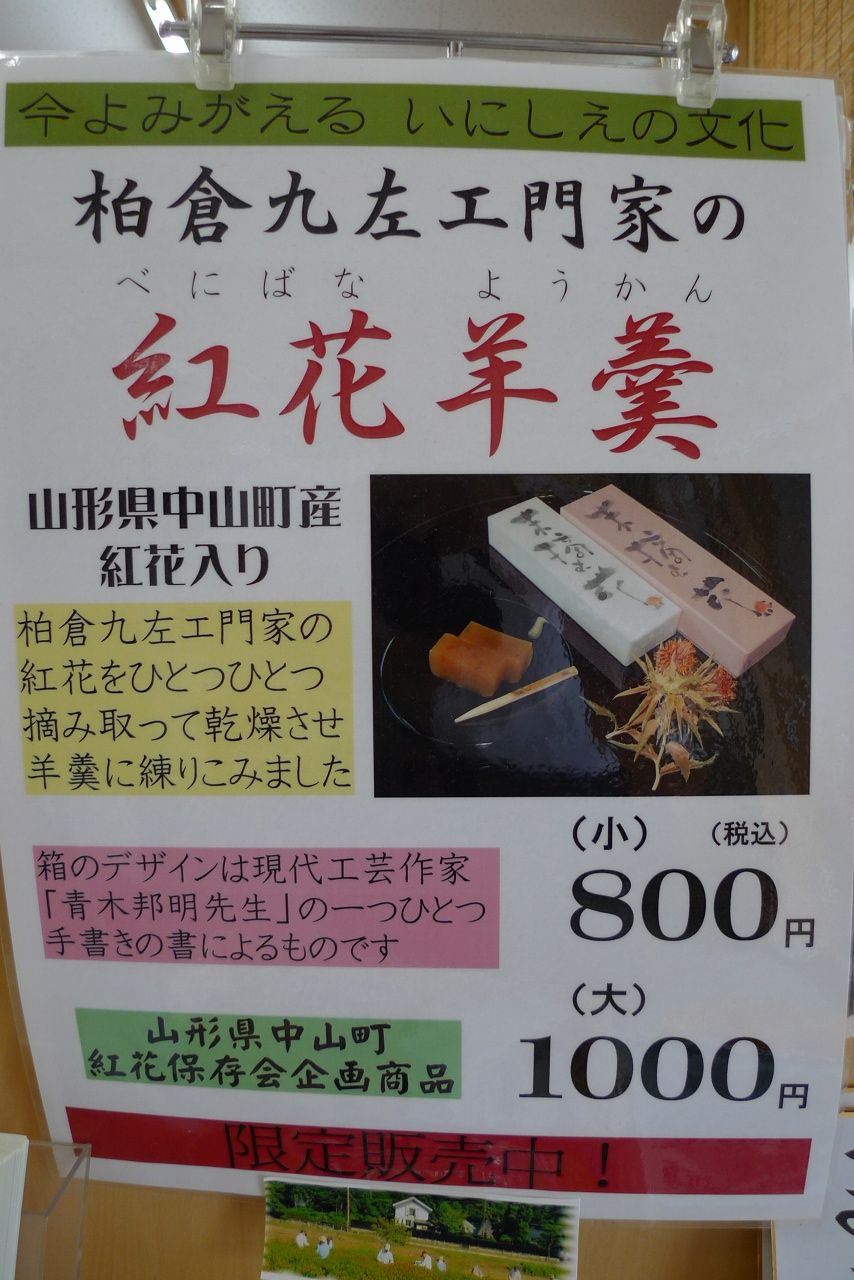 今よみがえる いにしえの文化
柏倉九左エ門家の
べにばな ようかん
紅花羊羹
山形県中山町産
紅花入り
柏倉九左エ門家の
紅花をひとつひとつ
摘み取って乾燥させ
羊羹に練りこみました
箱のデザインは現代工芸作家
「青木邦明先生」の一つひとつ
手書きの書によるものです
(小) (税込)
800円
(大)
1000円
山形県中山町
紅花保存会企画商品
限定販売中！